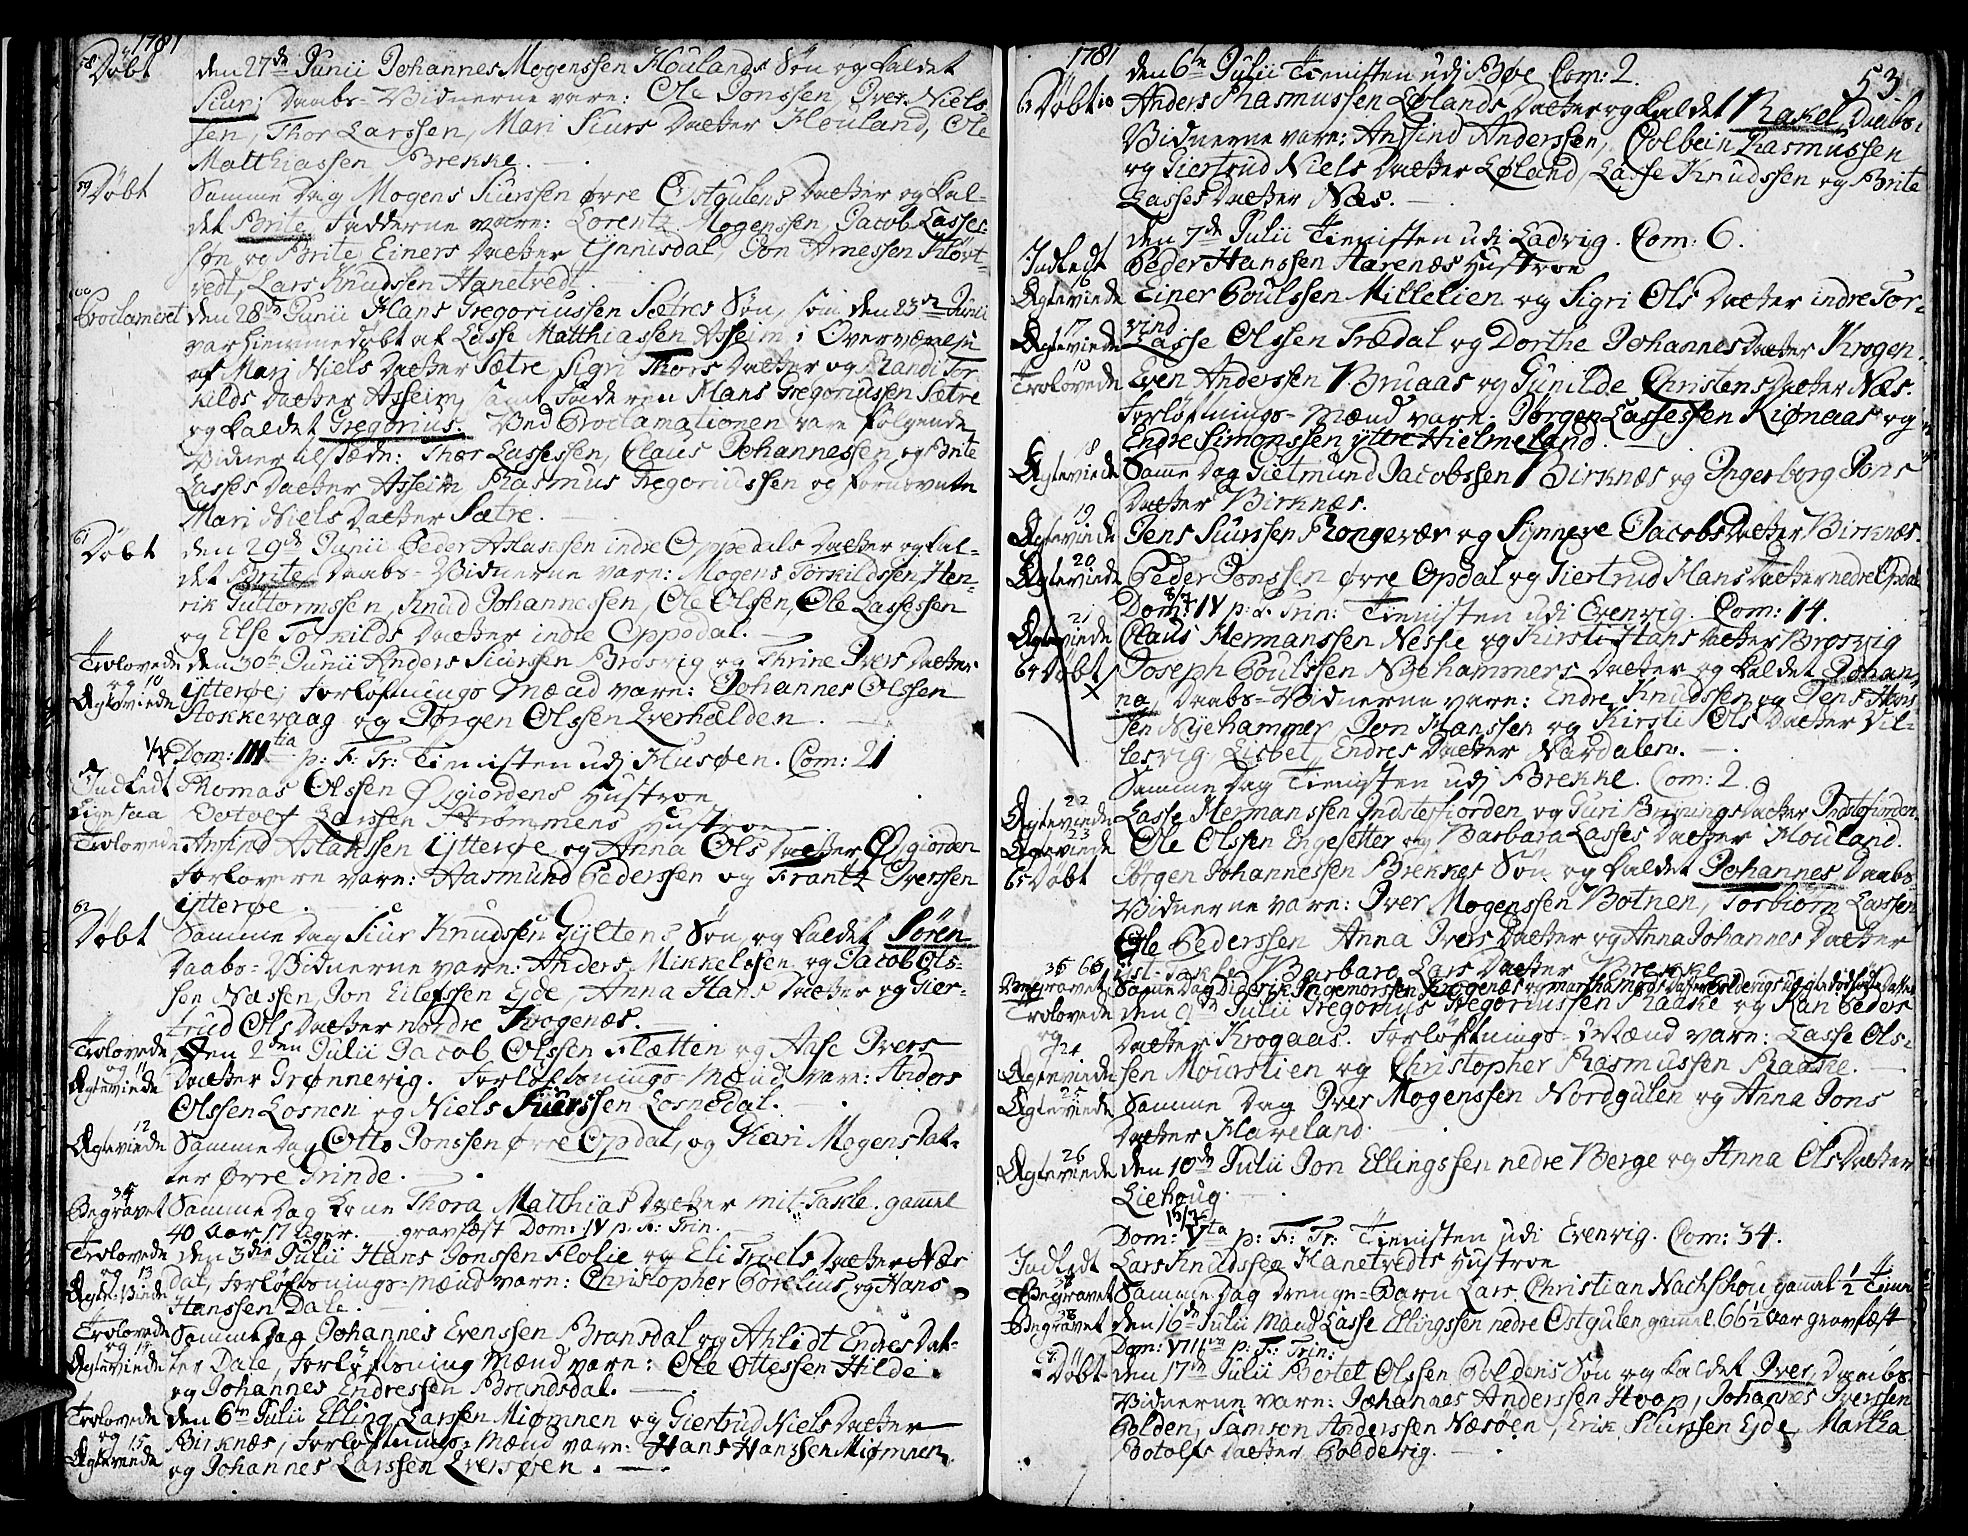 1781
58 Døbt den 27de Junii Johannes Mogenssen Houlands Søn og kaldet
Siur; Daabs-Vidnerne vare: Ole Jonssen, Iver Niels
sen, Thor Larssen, Mari Siurs Datter Houland, Ole
Matthiassen Brekke.
59 Døbt Samme Dag Mogens Siurssen øvre Østgulens Datter og kal-
det Brite Fadderne vare: Lorentz Mogenssen, Jacob Lasses-
søn og Brite Einers Datter Ynnisdal, Jon Arnessen Kløvt-
vedt, Lars Knudssen Hanetvedt.
60 Proclameret den 28de Junii Hans Gregoriussen Sætres Søn, som den 23de Junii
var hiemmedøbt af Lasse Matthiassen Asseim i Overværelse
af Mari Niels Datter Sætre, Sigri Thors Datter og Randi Tor-
kilds Datter Asseim, samt Faderen Hans Gregoriussen Sætre
og kaldet Gregorius. Ved Proclamationen vare følgende
Vidner tilstæde: Thor Lassessen, Claus Johannessen og Brite
Lasses Datter Asseim Rasmus Gregoriussen og fornævnte
Mari Niels Datter Sætre.
61 Døbt den 29de Junii Peder Aslakssen indre Oppedals Datter og kal-
det Brite Daabs-Vidnerne vare: Mogens Torkildssen, Hen-
rik Guttormssen, Knud Johannessen, Ole Olssen, Ole Lassessen
og Else Torkilds Datter indre Oppedal.
Trolovede den 30te Junii Anders Siurssen Brosvig og Thrine Ivers Datter
og 10 Ægteviede Ytterøe; Forløftnings Mænd vare: Johannes Olssen
Stokkevaag og Jørgen Olssen Everhalden.
1/7 Dom: III tia p: F: Tr: Tienisten udj Husøen. Com: 21
Indledt Thomas Olssen Øygiordens Hustroe
Ligesaa Botolf Larssen Strømmens Hustroe
Trolovede Anfind Aslakssen Ytterøe og Anna Ols Datter Øygiorden
Forlovere vare: Aasmund Pederssen og Frantz Iverssen
Ytterøe.
62 Døbt Samme Dag Siur Knudssen Gyltens Søn og kaldet Søren
Daabs-Vidnerne vare: Anders Mikkelssen og Jacob Ols-
sen Næssen, Jon Eilefssen Eide, Anna Hans Datter og Gier-
trud Ols Datter nordre Krogenæs.
Trolovede Den 2den Julii Jacob Olssen Flætten og Aase Ivers
og 11 Ægteviede Datter Grønnevig. Forløftnings-Mænd vare: Anders
Olssen Losnen og Niels Siurssen Losnedal.
12 Ægteviede Samme Dag Otto Jonssen øvre Opdal, og Kari Mogens Dat-
ter øvre Trinde.
34 Begravet Samme Dag Kone Thora Matthias Datter mit-Takle. gamel
40 Aar 17 Uger. gravfæst Dom: IV p: F: Trin.
Trolovede den 3die Julii Hans Jonssen Flolie og Eli Troels Datter Næs
og 13 Ægte-Viede dal, Forløftnings-Mænd vare: Christopher Borelius, og Hans
Hanssen Dale.
Trolovede Samme Dag Johannes Evenssen Bransdal og Ahlidt Endres Dat-
og 14 Ægteviede ter Dale, Forløftning Mænd vare: Ole Ottessen Hilde
og Johannes Endressen Brandsdal.
Trolovede den 6te Julii Elling Larssen Miømnen og Giertrud Niels Datter
og 15 Ægteviede Birknæs, Forløftnings-Mænd vare: Hans Hanssen Miømnen
og Johannes Larssen Eversøen.
1781
53.
den 6te Julii Tienisten udj Bøe Com: 2.
63 Døbt Anders Rasmussen Løslands Datter og kaldet Rakel Daabs-
Vidnerne vare: Anfind Anderssen, Colbein Rasmussen
og Giertrud Niels Datter Løland, Lasse Knudssen og Brite
Lasses Datter Næs.
den 7de Julii Tienisten udi Ladvig. Com: 6.
Indledt Peder Hanssen Harenæs Hustroe
16 Ægteviede Einer Poulssen Mittelien og Sigri Ols Datter indre Tor-
vind
17 Ægteviede Lasse Olssen Trædal og Dorthe Johannes Datter Krogen.
Trolovede Even Anderssen Bruaas og Gunilde Christens Datter Næs.
Forløftnings-Mænd vare: Jørgen Lassessen Kiønaas og
Endre Simonssen yttre Hielmeland.
18 Ægteviede Samme Dag Gietmund Jacobssen Birknæs og Ingerborg Jons
Datter Birknæs.
19 Ægteviede Jens Siurssen Rongevær og Sinneve Jacobs Datter Birknæs.
20 Ægteviede Peder Jonssen øvre Opdal og Giertrud Hans Datter nedre Opdal
8/7 Dom: IV p: F: Trin: Tienisten udi Evenvig. Com: 14.
21 Ægteviede Claus Hermanssen Nesse og Kirsti Hans Datter Brosvig
64 Døbt Joseph Poulssen Nyehammers Datter og kaldet Johan-
na, Daabs-Vidnerne vare: Endre Knudssen og Jens Hans-
sen Nyehammer, Jon Hanssen og Kirsti Ols Datter Vil-
lesvig, Lisbet Endres Datter Nærdalen.
Samme Dag Tienisten udj Brekke. Com: 2.
22 Ægteviede Lasse Hermanssen Indstefiorden og Guri Brynings Datter Indstefiorden
23 Ægteviede Ole Olssen Engesetter og Barbara Lasses Datter Houland.
65 Døbt Jørgen Johannessen Brekkes Søn og kaldet Johannes Daabs
Vidnerne vare: Iver Mogenssen Botnen, Torbiørn Larssen
Ole Pederssen Anna Ivers Datter og Anna Johannes Datter
Barbara Lars Datter Brekke
35 66 Begravet Samme Dag Diderik Ingemorssen Krogenæs og Martha
Trolovede den 9de Julii Gregorius Gregoriussen Raaske og Kari Peders
og 24 Datter Krogaas. Forløftnings-Mænd vare: Lasse Ols-
Ægteviede sen Mourstien og Christopher Rasmussen Raaske.
25 Ægteviede Samme Dag Iver Mogenssen Nordgulen og Anna Jons
Datter Haveland.
26 Ægteviede den 10de Julii Jon Ellingssen nedre Berge og Anna Ols Datter
Liehoug.
15/7 Dom: V ta p: F: Tr: Tienisten udi Evenvig. Com: 34.
Indledt Lars Knudssen Hanetvedts Hustroe
Begravet Samme Dag Drenge-Barn Lars Christian Nachskou gamel 1/2 Time
38 Begravet den 16de Julii Mand Lasse Ellingssen nedre Østgulen gammel. 66 1/2 Aar gravfæst
Dom: VII p: F: Trin:
Døbt den 17de Julii Botel Olssen Poldens Søn og kaldet Iver, Daabs
Vidnerne vare: Johannes Anderssen Hoop, Johannes Iverssen
Polden, Samson Anderssen Næsøen, Erik Siurssen Eide, Martha
Botolfs Datter Poldevig.